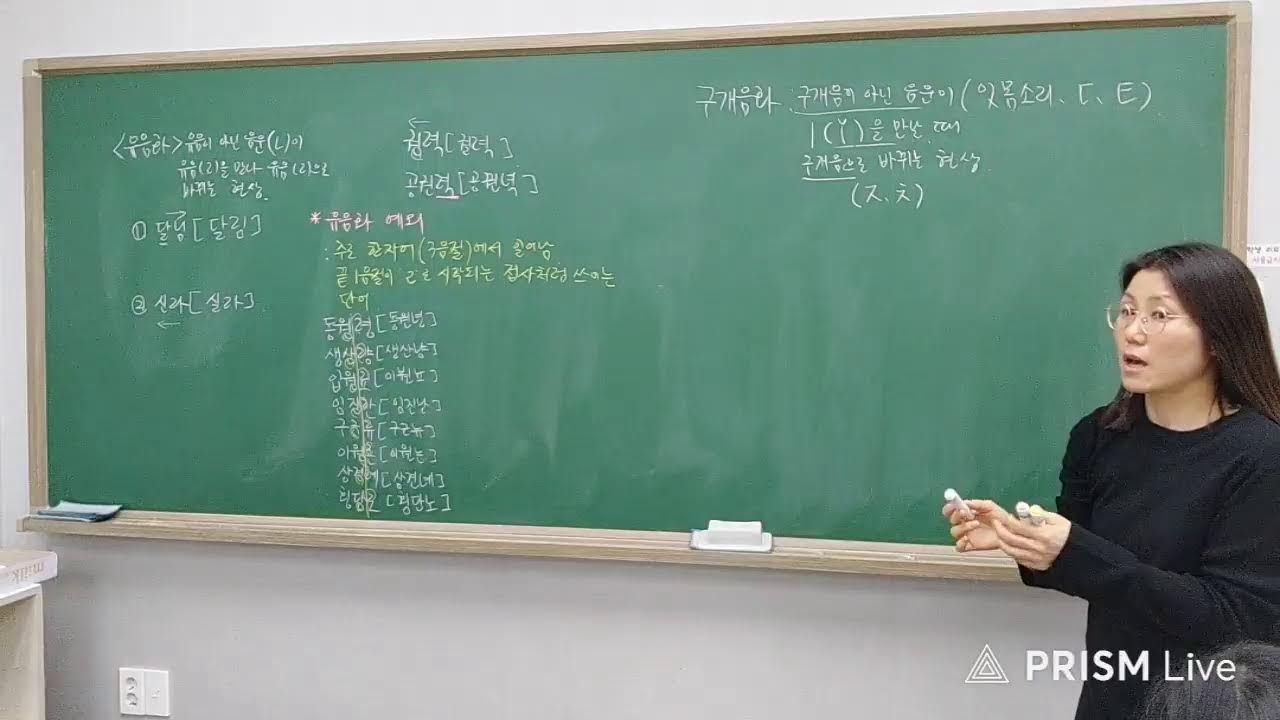 <유음화> 유음이 아닌 음운(ㄴ)이
유음(ㄹ)을 만나 유음(ㄹ)으로
바뀌는 현상.
① 달님[달림]
② 신라[실라]
권력[궐력]
공권력[공꿘녁]
* 유음화 예외
: 주로 한자어(3음절)에서 일어남
끝 1음절이 'ㄹ'로 시작되는 접사처럼 쓰이는
단어
동원령[동원녕]
생산량[생산냥]
입원료[이붠뇨]
임진란[임진난]
구근류[구근뉴]
이원론[이원논]
상견례[상견녜]
횡단로[횡단노]
구개음화 : 구개음이 아닌 음운이 (잇몸소리, ㄷ, ㅌ)
ㅣ(ㅣ̆)을 만난 때
구개음으로 바뀌는 현상.
(ㅈ, ㅊ)
milk
PRISM Live